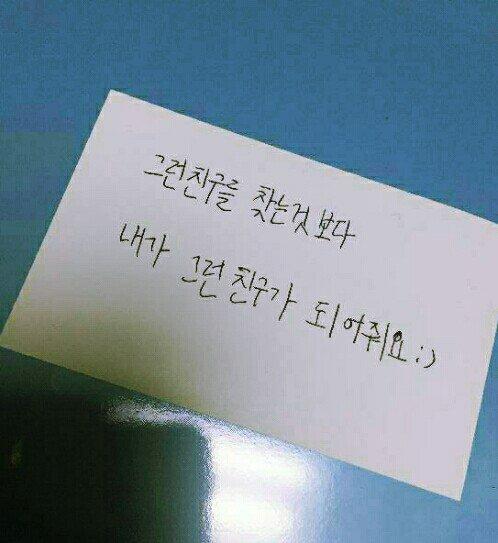 그런 친구를 찾는것 보다
내가 그런 친구가 되어줘요 :)